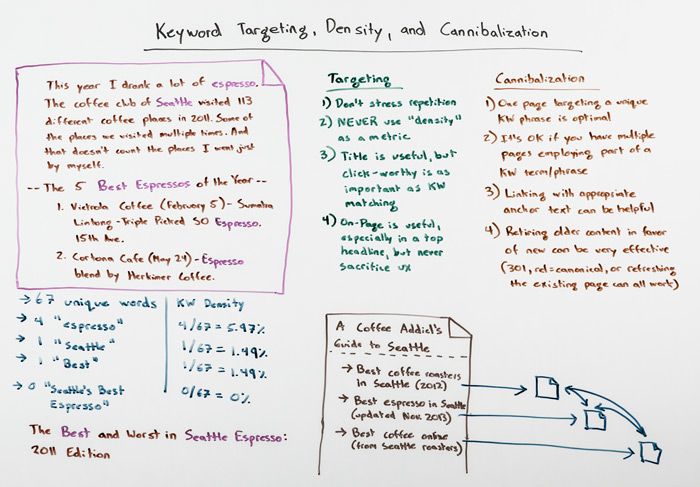 Keyword Targeting, Density, and Cannibalization
This year I drank a lot of espresso.
The coffee club of Seattle visited 113
different coffee places in 2011. Some of
the places we visited multiple times. And
that doesn't count the places I went just
by myself.
-- The 5 Best Espressos of the Year --
1. Victrola Coffee (February 5) - Sumatra
Lintong - Triple Picked SO Espresso.
15th Ave.
2. Cortona Cafe (May 24) - Espresso
blend by Herkimer Coffee.
→ 67 unique words
→ 4 "espresso"
→ 1 "Seattle"
→ 1 "Best"
→ 0 "Seattle's Best
Espresso"
KW Density
4/67 = 5.97%
1/67 = 1.49%
1/67 = 1.49%
0/67 = 0%
The Best and Worst in Seattle Espresso:
2011 Edition
Targeting
1) Don't stress repetition
2) NEVER use "density"
as a metric
3) Title is useful, but
click-worthy is as
important as KW
matching
4) On-Page is useful,
especially in a top
headline, but never
sacrifice UX
Cannibalization
1) One page targeting a unique
KW phrase is optimal
2) It's OK if you have multiple
pages employing part of a
KW term/phrase
3) Linking with appropriate
anchor text can be helpful
4) Retiring older content in favor
of new can be very effective
(301, rel=canonical, or refreshing
the existing page can all work)
A Coffee Addict's
Guide to Seattle
→ Best coffee roasters
in Seattle (2012)
→ Best espresso in Seattle
(updated Nov. 2013)
→ Best coffee online
(from Seattle roasters)